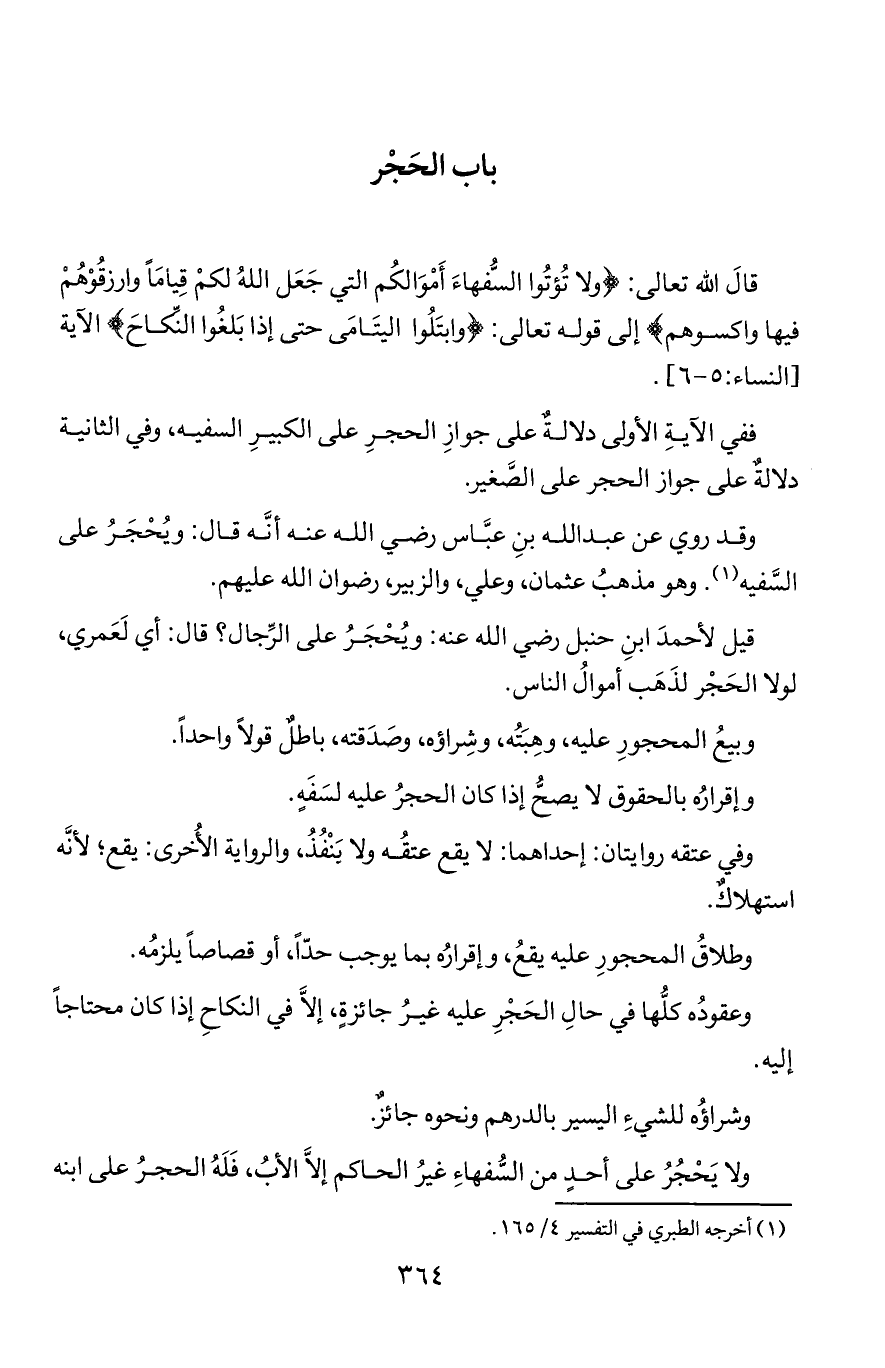 باب الحَجْر
قالَ الله تعالى: ﴿ولا تُؤتُوا السُّفهاءَ أَمْوَالكُم التي جَعَل اللهُ لكمْ قِيامَاً وارزقُوْهُمْ
فيها واكسوهم﴾ إلى قوله تعالى: ﴿وابتَلُوا اليتَامَى حتى إذا بَلغُوا النِّكاحَ﴾ الآية
[النساء:٥-٦] .
ففي الآيةِ الأولى دلالةٌ على جوازِ الحجرِ على الكبيرِ السفيه، وفي الثانية
دلالةٌ على جواز الحجر على الصَّغير.
وقد روي عن عبدالله بنِ عبَّاس رضي الله عنه أنَّه قال: ويُحْجَرُ على
السَّفيه(١). وهو مذهبُ عثمان، وعلي، والزبير، رضوان الله عليهم.
قيل لأحمدَ ابنِ حنبل رضي الله عنه: ويُحْجَرُ على الرِّجال؟ قال: أي لَعَمري،
لولا الحَجْر لذَهَب أموالُ الناس.
وبيعُ المحجورِ عليه، وهِبَتُه، وشِراؤه، وصَدَقته، باطلٌ قولاً واحداً.
وإقرارُه بالحقوق لا يصحُّ إذا كان الحجرُ عليه لسَفَهٍ.
وفي عتقه روايتان: إحداهما: لا يقع عتقُه ولا يَنْفُذُ، والرواية الأُخرى: يقع؛ لأنَّه
استهلاكٌ.
وطلاقُ المحجورِ عليه يقعُ، وإقرارُه بما يوجب حدّاً، أو قصاصاً يلزمُه.
وعقودُه كلُّها في حالِ الحَجْرِ عليه غيرُ جائزةٍ، إلاَّ في النكاحِ إذا كان محتاجاً
إليه.
وشراؤُه للشيءِ اليسير بالدرهم ونحوه جائزٌ.
ولا يَحْجُرُ على أحدٍ من السُّفهاءِ غيرُ الحاكم إلاَّ الأبُ، فَلَهُ الحجرُ على ابنه
(١) أخرجه الطبري في التفسير ٤/ ١٦٥.
٣٦٤